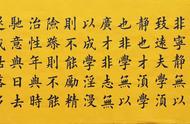 非寧靜無以
致遠夫學須
靜也才須學
也非學無以
廣才非志無
以成學淫慢
則不能勵精
險躁則不能
治性年與時
馳意與日去
遂成枯落多